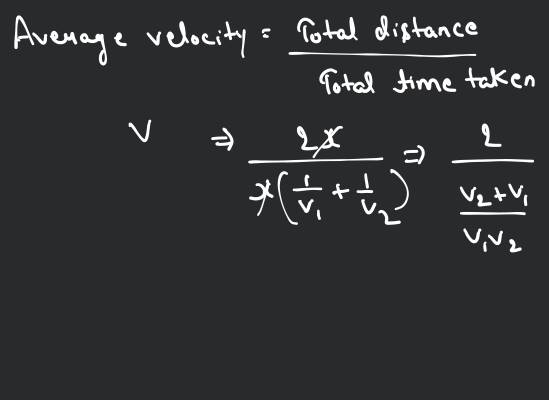 Average velocity = Total distance / Total time taken
V ⇒ 2x / x(1/V₁ + 1/V₂) ⇒ 2 / ((V₂+V₁) / V₁V₂)